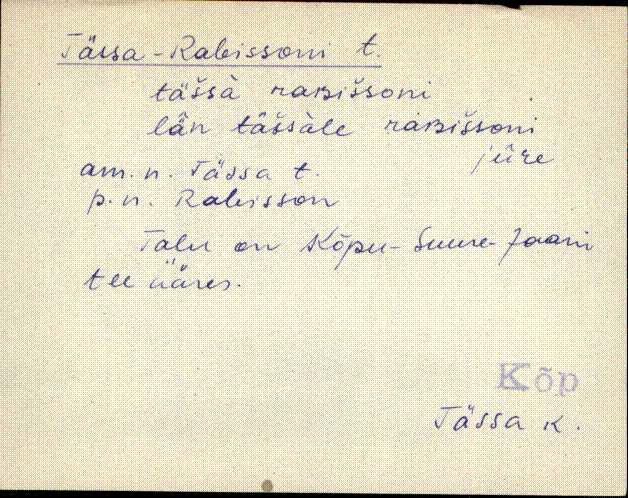 Tässa-Rabissoni t.
täššà raʙiššoni
lǟn täššàle raʙiššoni
jüre
am. n. Tässa t.
p. n. Rabisson
Talu on Kõpu-Suure-Jaani
tee ääres.
Kõp
Tässa k.